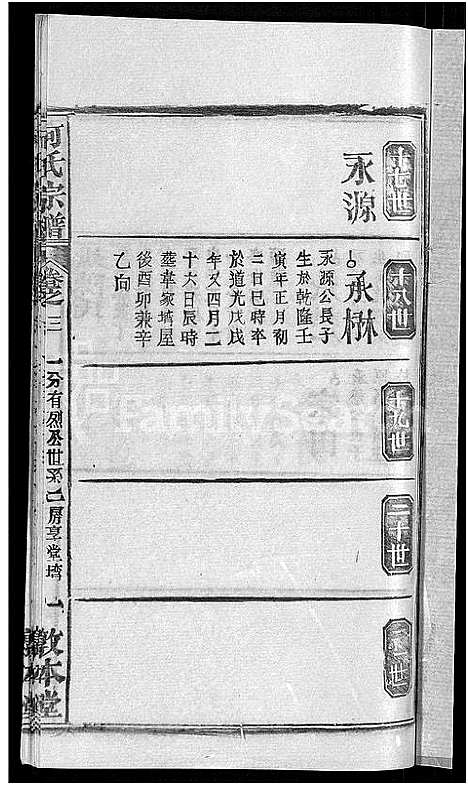 十七世
永源
十八世
承楙
永源公長子
生於乾隆壬
寅年正月初
二日巳時卒
於道光戊戌
年又四月二
十六日辰時
塟韋家塆屋
後酉卯兼辛
乙向
十九世
二十世
世
何氏宗譜
卷之三
一分有烈丞世系
房享堂塆
一
敦本堂
FamilySearch